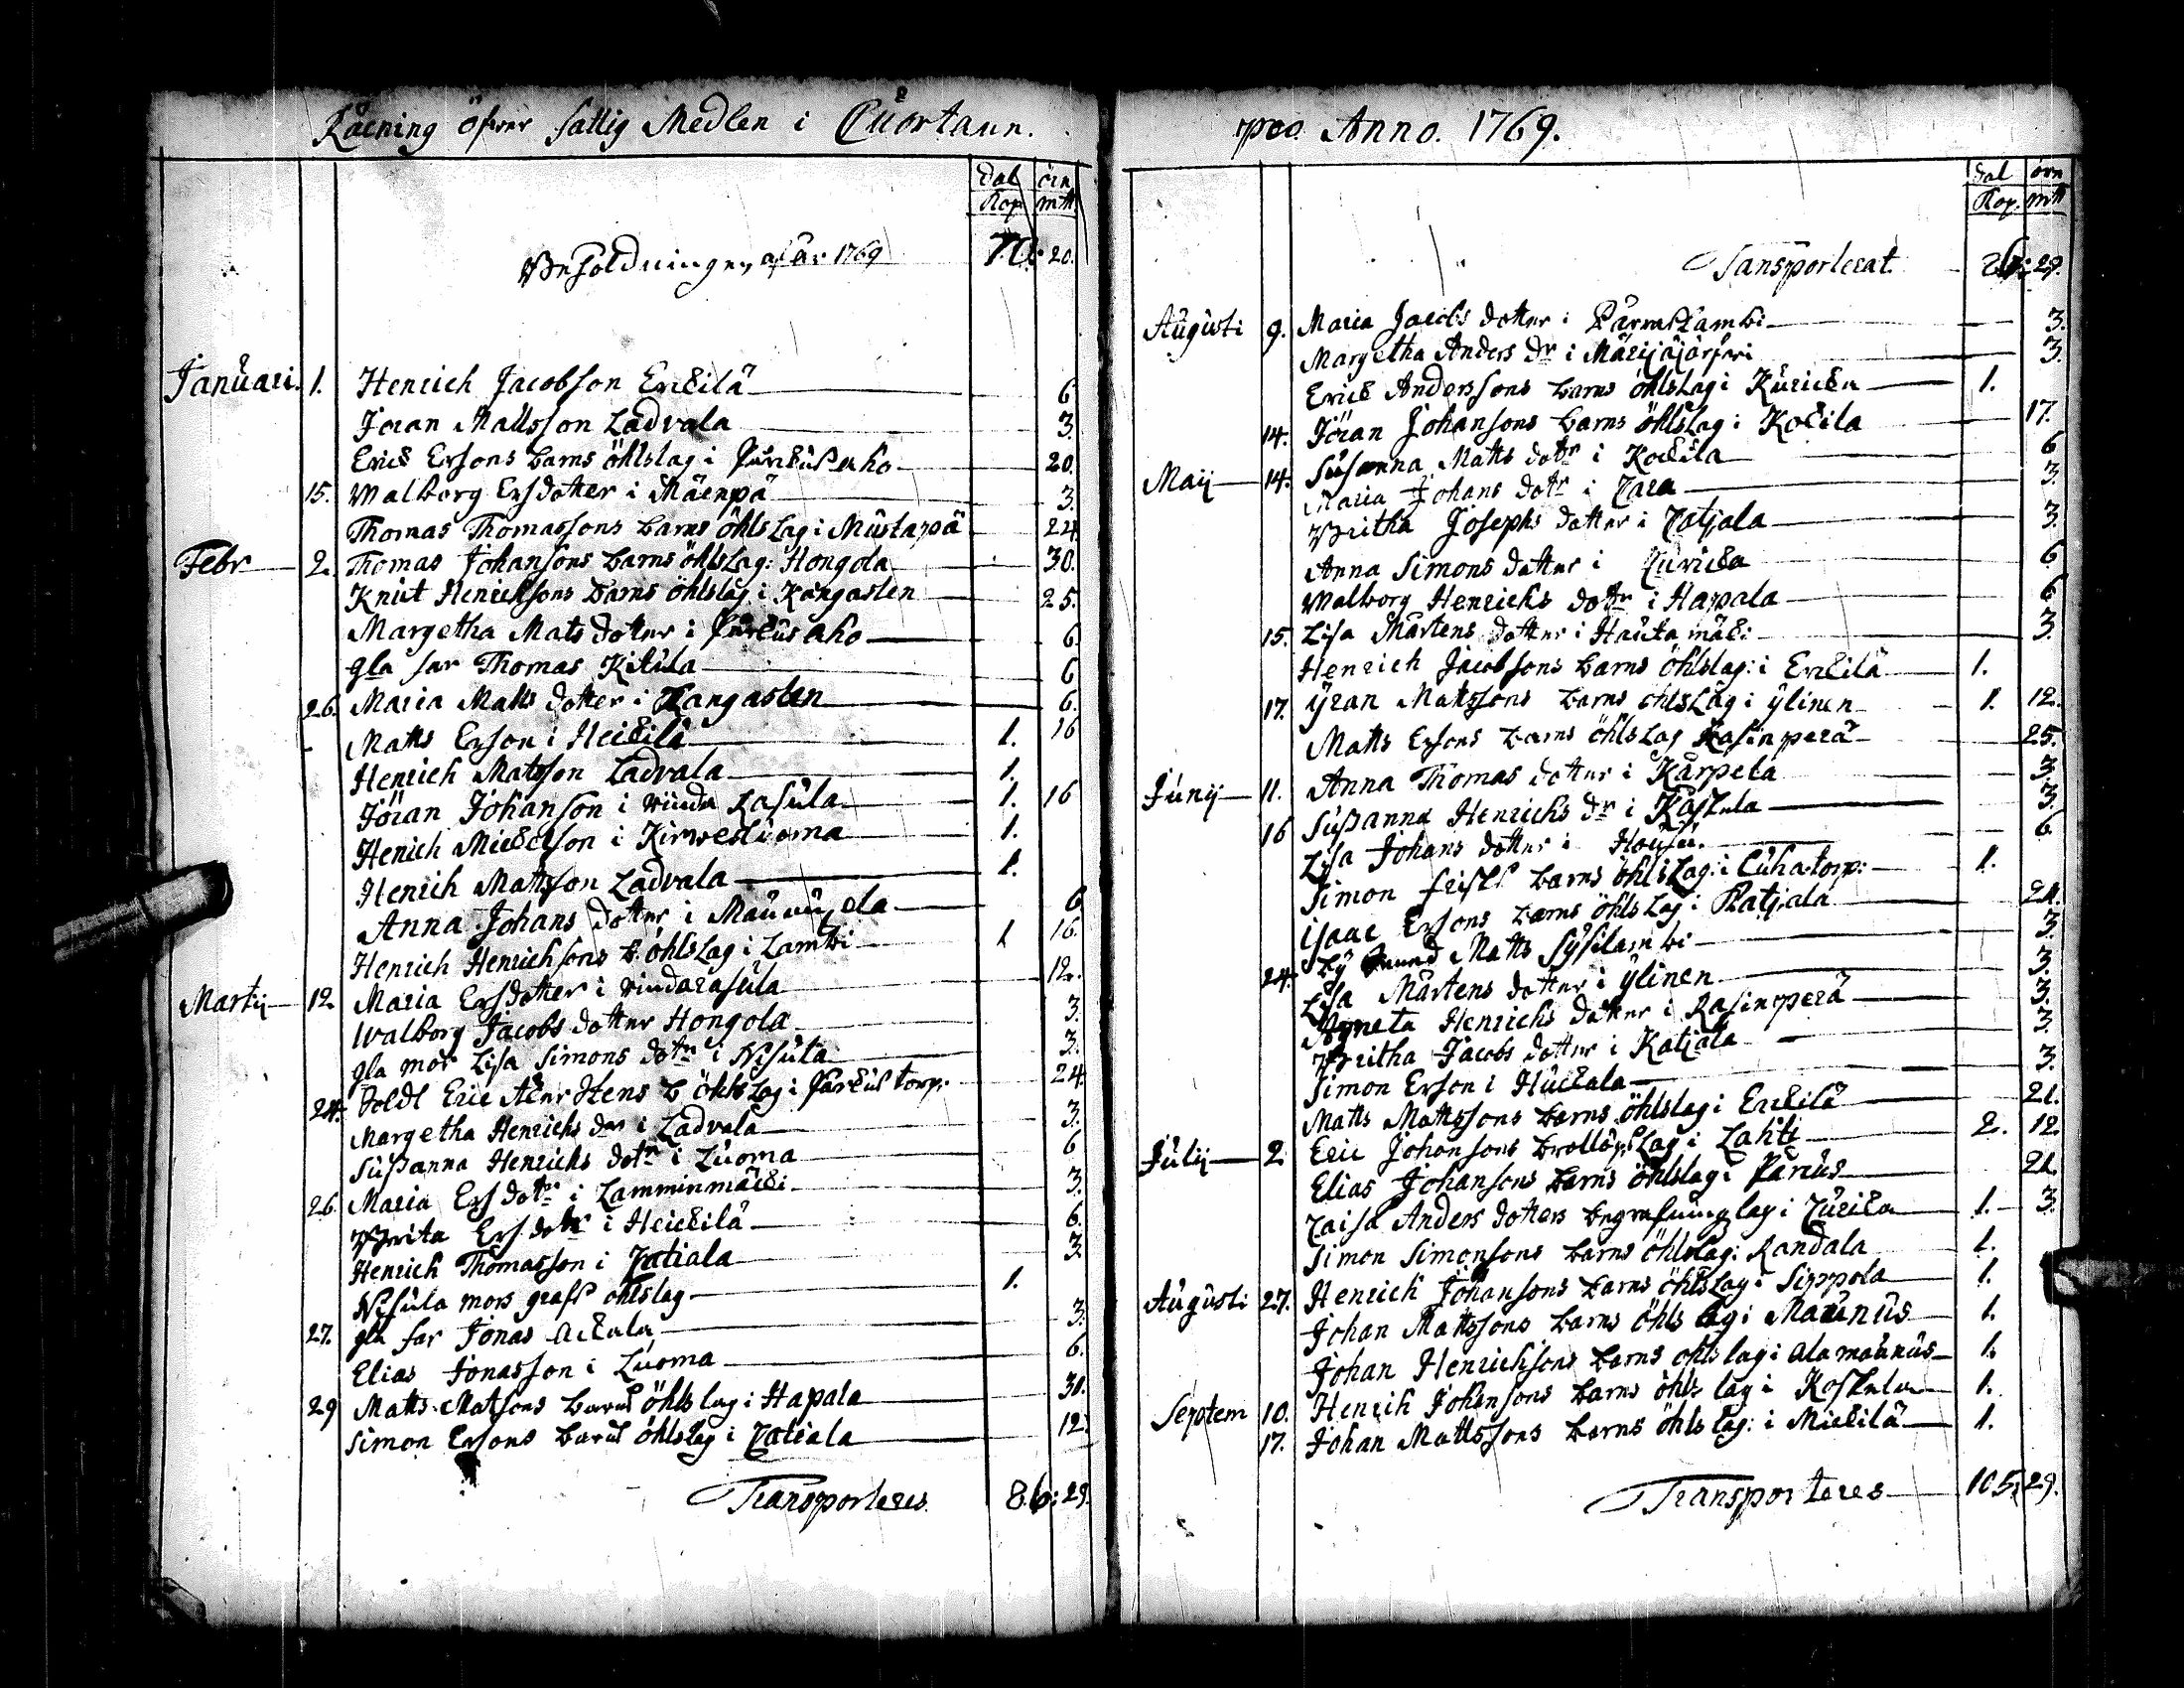 Räcning öfver fattig Medlen i Cuortann.
Dal örn
Kop mtt
Behåldningen af år 1769 70: 20.
Januari. 1. Henrich Jacobson Erckilä 6
Jöran Mattsson Ladvala 3.
Erick Ersons barns öhlslag i Purckusaho 20.
15. Walborg Ersdotter i Mäenpä 3.
Thomas Thomassons barns öhlslag i Mustapä 24
Febr 2. Thomas Johansons barns öhlslag: Hongola 30.
Knut Henrichsons barns öhlslag i Kangasten 25.
Margetha Mats dotter i aho 6
gla far Thomas Kitula 6
26. Maria Matts dotter i Kangasten 6.
Matts Erson i Heickilä 1. 16
Henrich Matsson Ladvala 1.
Jöran Johanson i Rinda Lasula 1. 16
Henrich Mickelson i Kirwesluoma 1.
Henrich Mattsson Ladvala 1.
Anna Johans dotter i 6
Henrich Henrichsons b. öhlslag i Lambi 1 16.
Martij 12 Maria Ersdotter i 12.
Walborg Jacobs dotter Hongola 3.
gla mor Lisa Simons dotr i Nisula 3.
24. Soldt Eric Hens b öhlslag i torp: 24.
Margetha Henrichs dor i Ladvala 3.
Sussanna Henrichs dotr i Luoma 6
26. Maria Ers dotr i Lamminmäcki 3.
Brita Ers dotr i Heickilä 6.
Henrich Thomasson i Latiala 3.
Nisula mors grafs öhlslag 1.
27. gla far Jonas Ackala 3.
Elias Jonasson i Luoma 6.
29 Matts Matsons barns öhlslag i Hapala 30.
Simon Ersons barns öhlslag i Latiala 12.
Transporteres 86: 29.
pro Anno. 1769.
Dal örn
Kop. mtt
Transporterat. 86: 29.
Augusti 9. Maria Jacobs dotter i Lambi 3.
Margetha Anders Dr i Märijäjärfwi 3.
Erick Anderssons barns öhlslag i Kuricka 1.
14. Jöran Johansons barns öhlslag i Kockila 17.
Maij 14. Susanna Matts dotr i Kockila 6
Maria Johans dotr i Lara 3.
Britha Josephs dotter i Latjala 3.
Anna Simons dotter i Luricka 6
Walborg Henrichs dotr i Hapala 6
15. Lisa Mårtens dotter i Hautamäki 3.
Henrich Jacobsons barns öhlslag: i Erckilä 1.
17. Yran Matssons barns öhlslag i Ylinen 1. 12.
Matts Ersons barns öhlslag Kasinperä 25.
Junij 11. Anna Thomas dotter i Karpela 3.
16 Sussanna Henrichs dr i Koskela 3.
Lisa Johans dotter i 6
Simon Frisks barns öhlslag: i Luhatorp: 1.
Isaac Ersons barns öhlslag i Ratjala 24.
24. Matts Sysilambi 3.
Lisa Mårtens dotter i Ylinen 3.
Agneta Henrichs dotter i Rasinperä 3.
Britha Jacobs dotter i Katjala 3.
Simon Erson i Huckala 3.
Matts Mattssons barns öhlslag i Erckilä 21.
Julij 2. Eric Johansons Bröllopslag i Lahti 2. 12.
Elias Johansons barns öhlslag i Parrus 21.
Caisa Anders dotters begrafnings lag i Luricka 1. 3.
Simon Simonsons barns öhlslag: Randala 1.
Augusti 27. Henrich Johansons barns öhlslag i Sippola 1.
Johan Mattssons barns öhlslag i Maunus 1.
Johan Henrichsons barns öhlslag i Alamaunus 1.
Septem 10. Henrich Johansons barns öhlslag i Koskela 1.
17. Johan Mattssons barns öhlslag: i Mickilä 1.
Transporteres 105: 29.